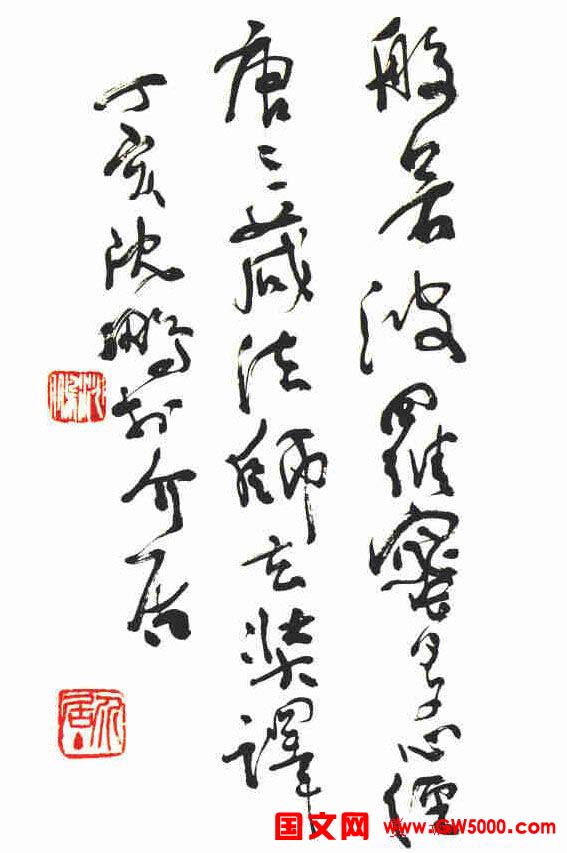 般若波羅蜜多心經
唐三藏法師玄奘譯
丁亥沈鵬於介居
沈鵬
介居
国文网 www.GW5000.com